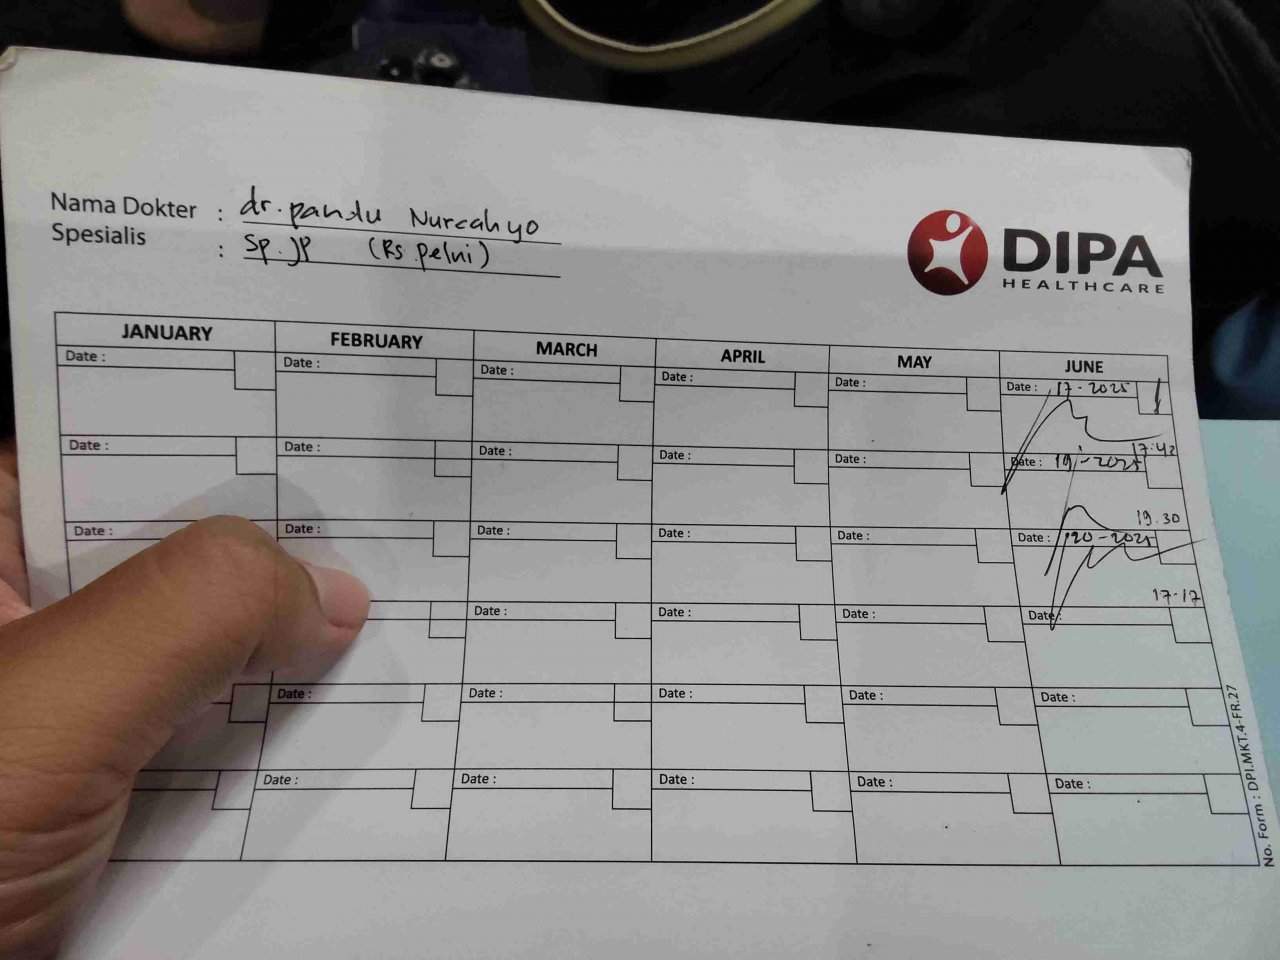 Nama Dokter : dr. pandu Nurcahyo
Spesialis : Sp. JP (Rs pelni)
DIPA
HEALTHCARE
JANUARY FEBRUARY MARCH APRIL MAY JUNE
Date : Date : Date : Date : Date : Date : 17 - 2025
17:42
Date : Date : Date : Date : Date : Date : 19 - 2025
19.30
Date : Date : Date : Date : Date : Date : 20 - 2025
17-17
Date : Date : Date : Date :
Date : Date : Date : Date : Date :
Date : Date : Date : Date : Date :
No. Form : DPI.MKT.4-FR.27